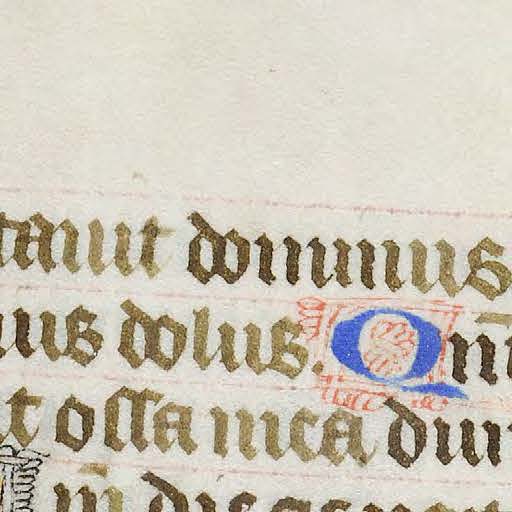 tauit dominus
us dolus. Qm̄
t ossa mea dum